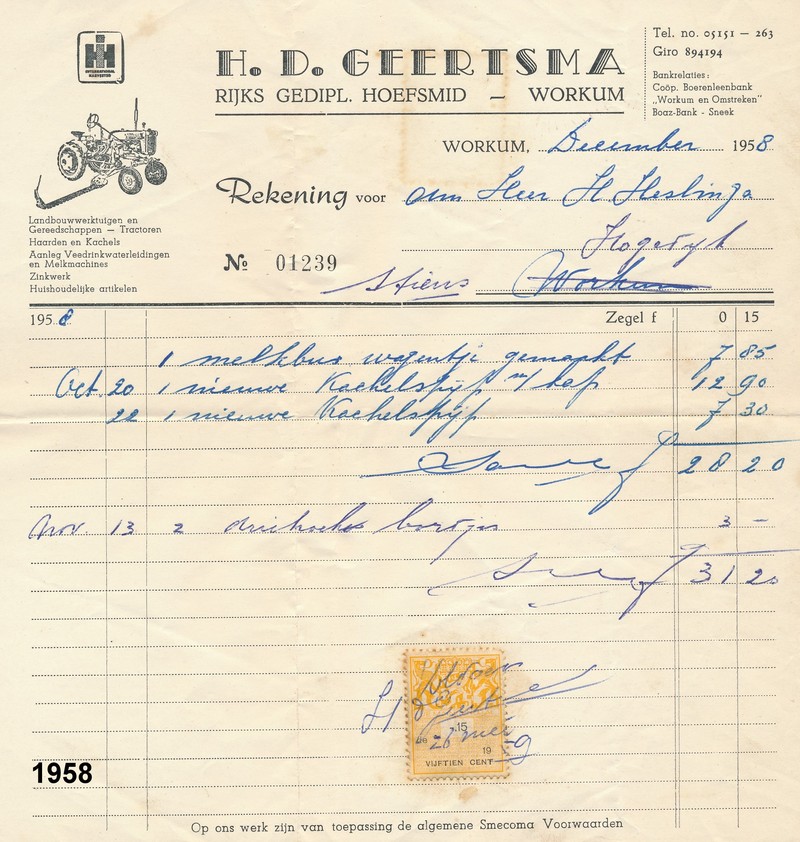 IH
INTERNATIONAL
HARVESTER
H. D. GEERTSMA
RIJKS GEDIPL. HOEFSMID — WORKUM
Tel. no. 05151 — 263
Giro 894194
Bankrelaties:
Coöp. Boerenleenbank
„Workum en Omstreken"
Boaz-Bank - Sneek
WORKUM, December 1958
Rekening voor den Heer H Heslinga
Hogedyk
Nº 01239
Stiens Workum
Landbouwwerktuigen en
Gereedschappen — Tractoren
Haarden en Kachels
Aanleg Veedrinkwaterleidingen
en Melkmachines
Zinkwerk
Huishoudelijke artikelen
1958 Zegel f 0 15
1 melkbus wagentje gemaakt 7 85
Oct. 20 1 nieuwe Kachelspijp m/ kap 12 90
22 1 nieuwe Kachelspijp 7 30
f 28 20
Nov. 13 2 driehoek bortjes 3 —
f 31 20
Voldaan
15
de 26 mei 1959
VIJFTIEN CENT
1958
Op ons werk zijn van toepassing de algemene Smecoma Voorwaarden